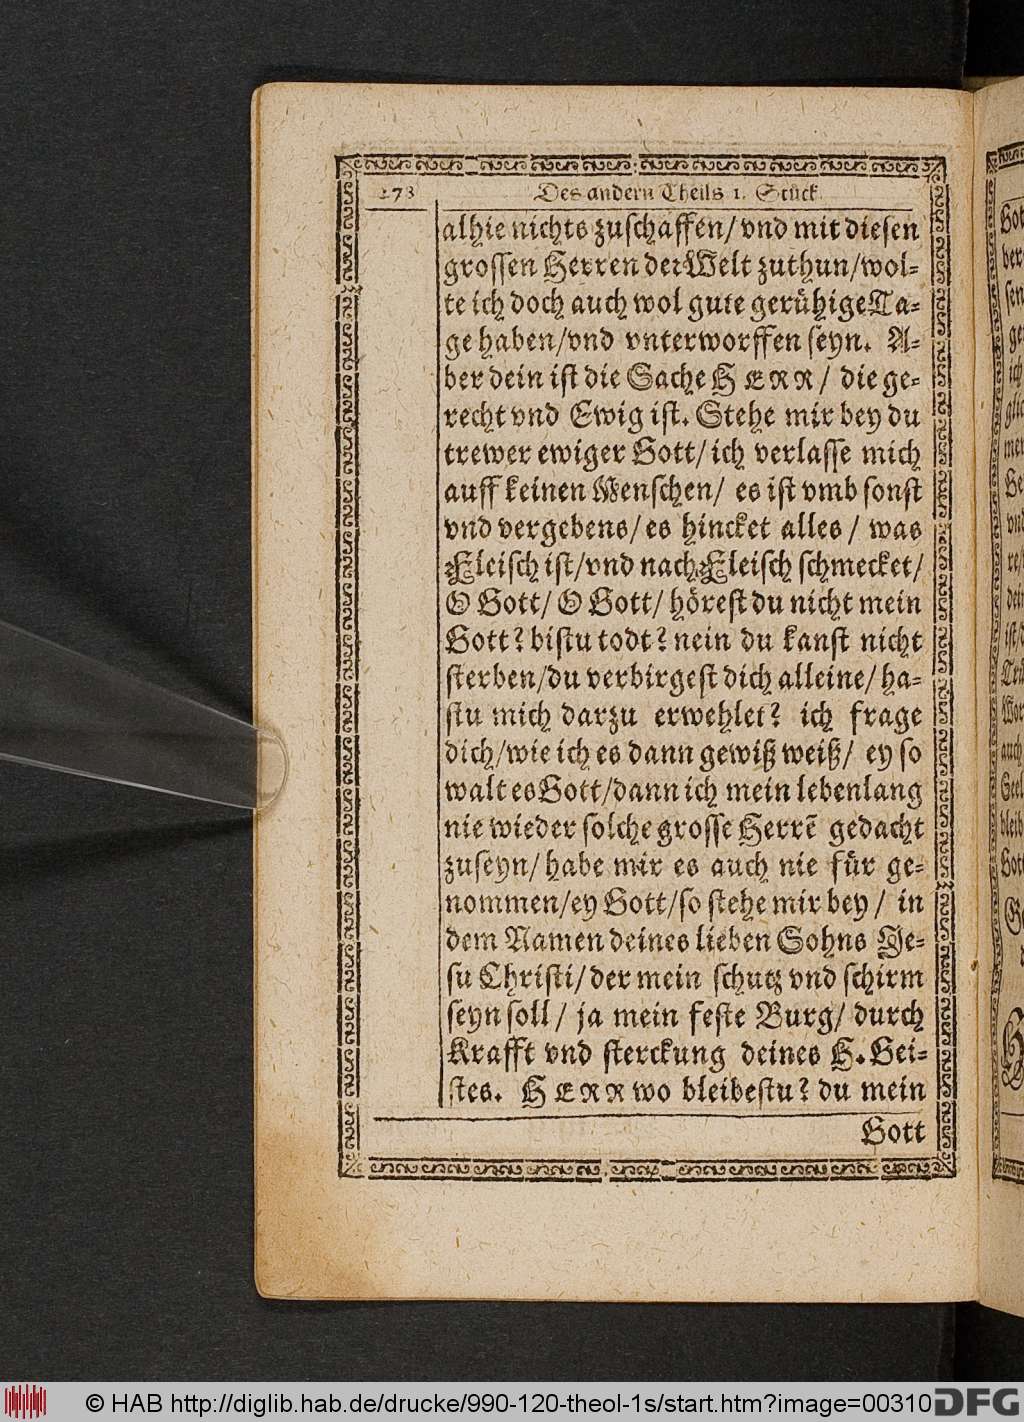 278 Des andern Theils 1. Stück.
alhie nichts zuschaffen/ vnd mit diesen
grossen Herren der Welt zuthun/wol-
te ich doch auch wol gute gerühige Ta-
ge haben/vnd vnterworffen seyn. A-
ber dein ist die Sache HERR/ die ge-
recht vnd Ewig ist. Stehe mir bey du
trewer ewiger Gott/ ich verlasse mich
auff keinen Menschen/ es ist vmb sonst
vnd vergebens/ es hincket alles/ was
Fleisch ist/vnd nach Fleisch schmecket/
O Gott/ O Gott/ hörest du nicht mein
Gott? bistu todt? nein du kanst nicht
sterben/du verbirgest dich alleine/ ha-
stu mich darzu erwehlet? ich frage
dich/wie ich es dann gewiß weiß/ ey so
walt es Gott/dann ich mein lebenlang
nie wieder solche grosse Herrē gedacht
zuseyn/ habe mir es auch nie für ge-
nommen/ey Gott/so stehe mir bey/ in
dem Namen deines lieben Sohns Je-
su Christi/ der mein schutz vnd schirm
seyn soll/ ja mein feste Burg/ durch
Krafft vnd sterckung deines H. Gei-
stes. HERR wo bleibestu? du mein
Gott
© HAB http://diglib.hab.de/drucke/990-120-theol-1s/start.htm?image=00310
DFG